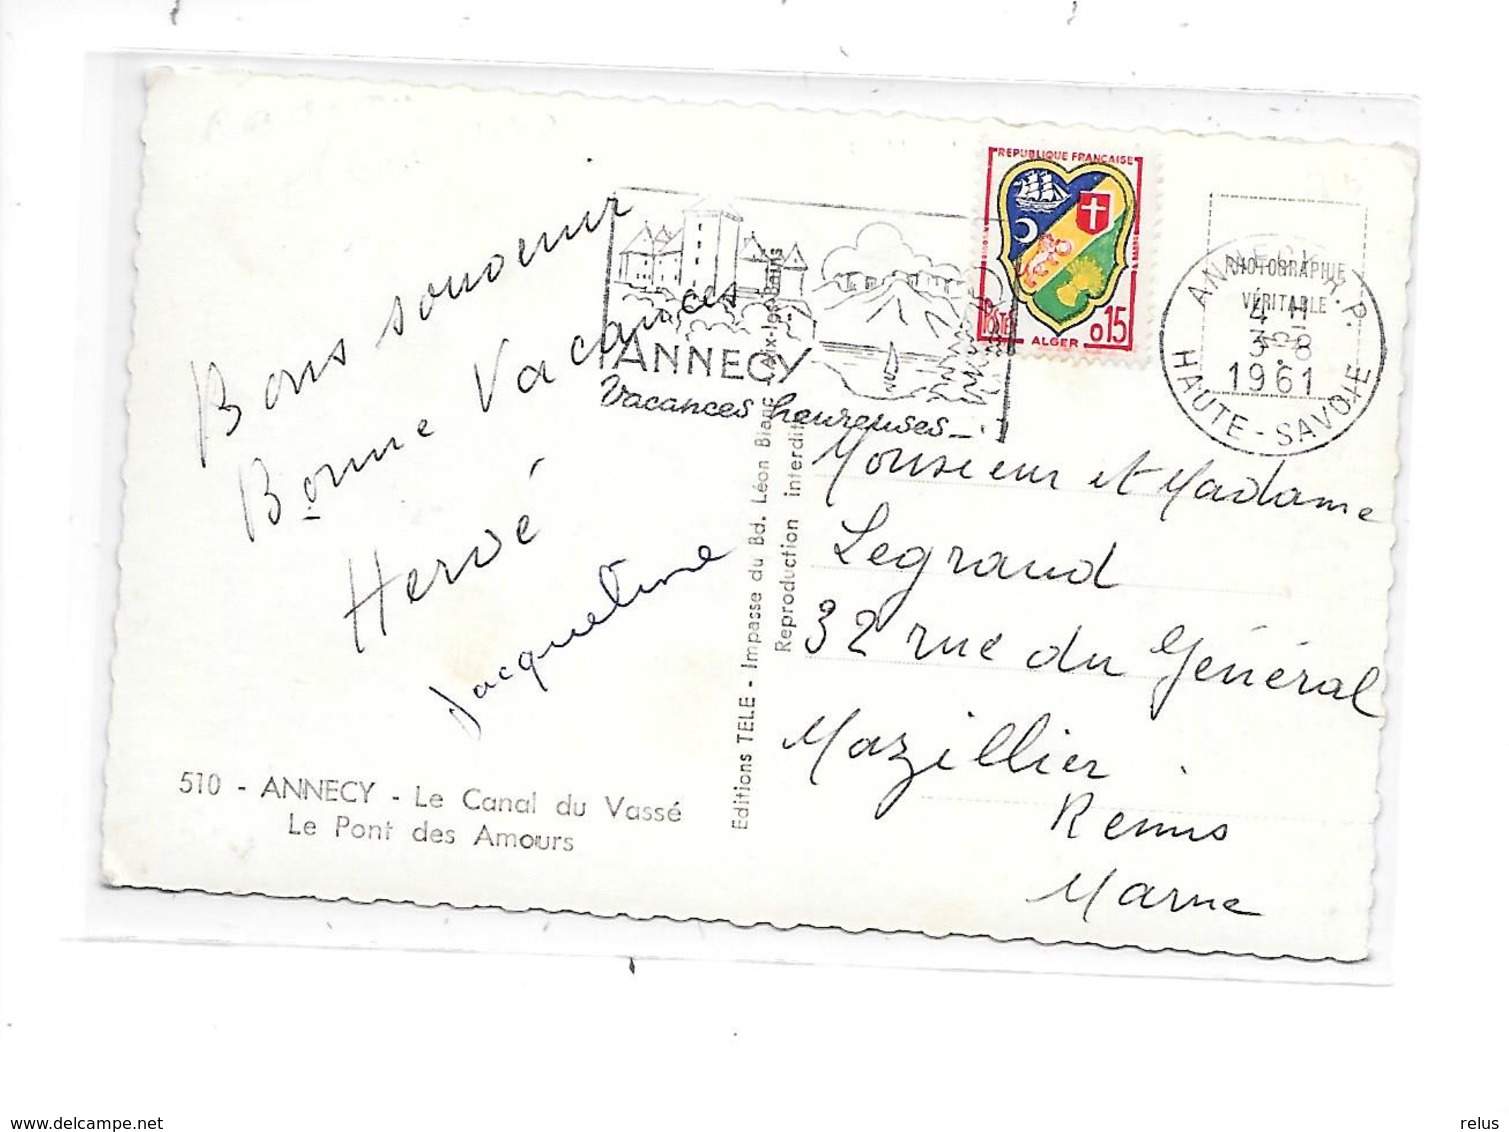 Bons souvenir
Bonne Vacances
Hervé
Jacqueline
510 - ANNECY - Le Canal du Vassé
Le Pont des Amours
Editions TELE - Impasse du Bd. Léon Blanc - Aix-les-Bains
Reproduction interdite
ANNECY
Vacances heureuses
REPUBLIQUE FRANÇAISE
POSTES
ALGER
0,15
PHOTOGRAPHIE
VÉRITABLE
ANNECY R.P.
4 H
3-8
1961
HAUTE-SAVOIE
Monsieur et Madame
Legrand
32 rue du Général
Mazillier.
Reims
Marne
www.delcampe.net
relus